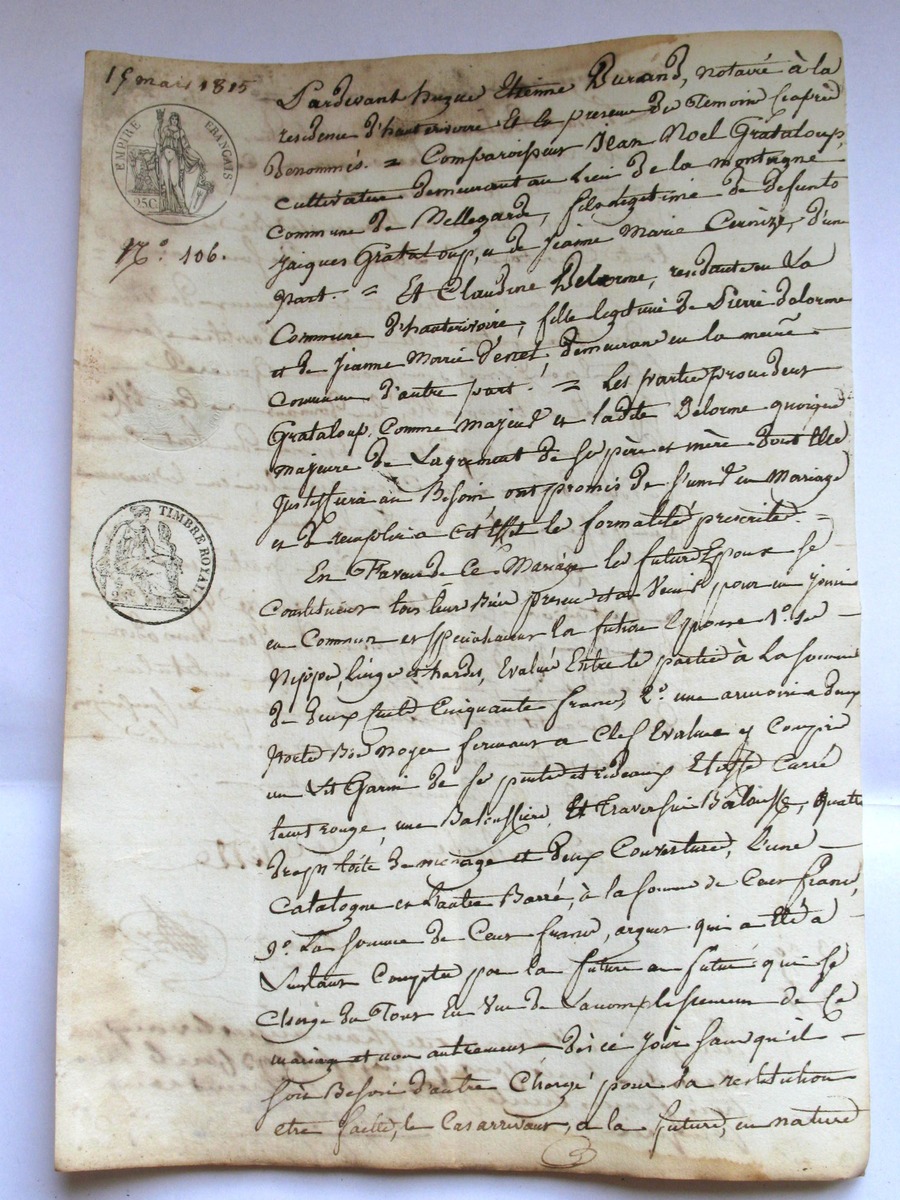 15 mars 1815
EMPIRE FRANÇAIS
25C
N.º 106.
TIMBRE ROYAL
Pardevant hugue Etienne Durand, notaire à la
residence d'hauterivoire Et en presence des Temoins Ciaprès
Denommés. = Comparoissent Jean Noel Grataloup,
Cultivateur demeurant au Lieu de la montagne
Commune de Bellegarde, fils légitime de defunts
Jacques Grataloup, et de Jeanne Marie, d'une
part. = Et Claudine Delorme, residante en La
Commune d'hauterivoire, fille legitime de Pierre delorme
et de Jeanne Marie, demeurant en la meme
Commune d'autre part. = Les parties procedent
Grataloup Comme majeur et ladite Delorme quoique
majeure de Lagrement de ses père et mère dont Elle
Justiffiera au Besoin ont promis de sunir en Mariage
et de remplir a cet Effet les formalités prescrites. =
En Faveur de Ce Mariage les futurs Epoux se
Constituent tous leurs Biens presents et a Venir pour en jouir
en Commun et specialement la future Epouse 1.º ses
Nippes, Linge et hardes, Evalués Entre les parties à La somme
de deux Cents Cinquante francs, 2.º une armoire a deux
portes Bois Noyer fermant a Clef Evaluée y Compris
un Lit Garni de ses pentes et rideaux Etoffe Carré
leur rouge, une, Et traversin, quatre
draps toile de menage et deux Couvertures, L'une
Catalogne et L'autre Barré, à la somme de Cent francs,
3º La somme de Cent francs, argent qui a Eté a
Linstant Comptée par la future au futur qui se
Charge du Tout En Vue de Laccomplissement de Ce
mariage et non autrement dès ce jour sans qu'il
soit Besoin d'autre Charge pour sa restitution
etre faitte, le Cas arrivant, a la future, en nature